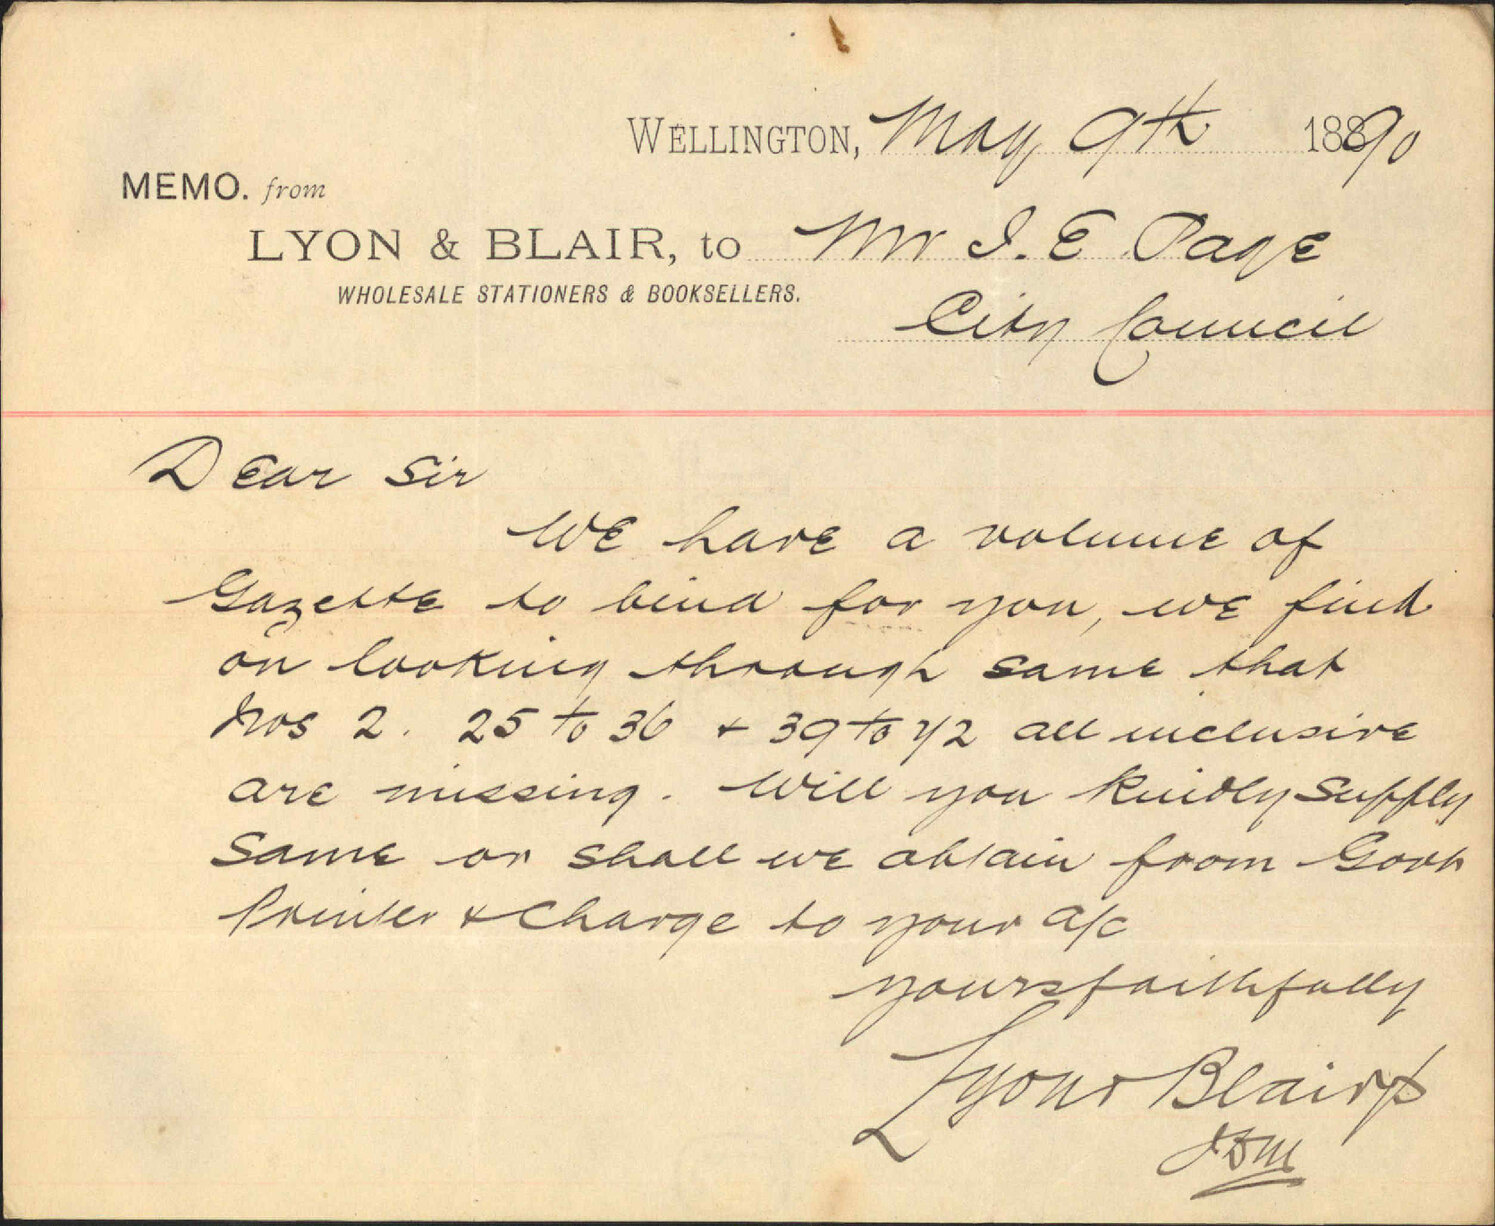 WELLINGTON, May 9th 1890
MEMO. from
LYON & BLAIR, to Mr J. E. Page
WHOLESALE STATIONERS & BOOKSELLERS.
City Council
Dear Sir
We have a volume of
Gazette to bind for you, we find
on looking through same that
Nos 2. 25 to 36 & 39 to 42 all inclusive
are missing. Will you kindly supply
same or shall we obtain from Govt
Printer & charge to your a/c
yours faithfully
Lyon & Blair